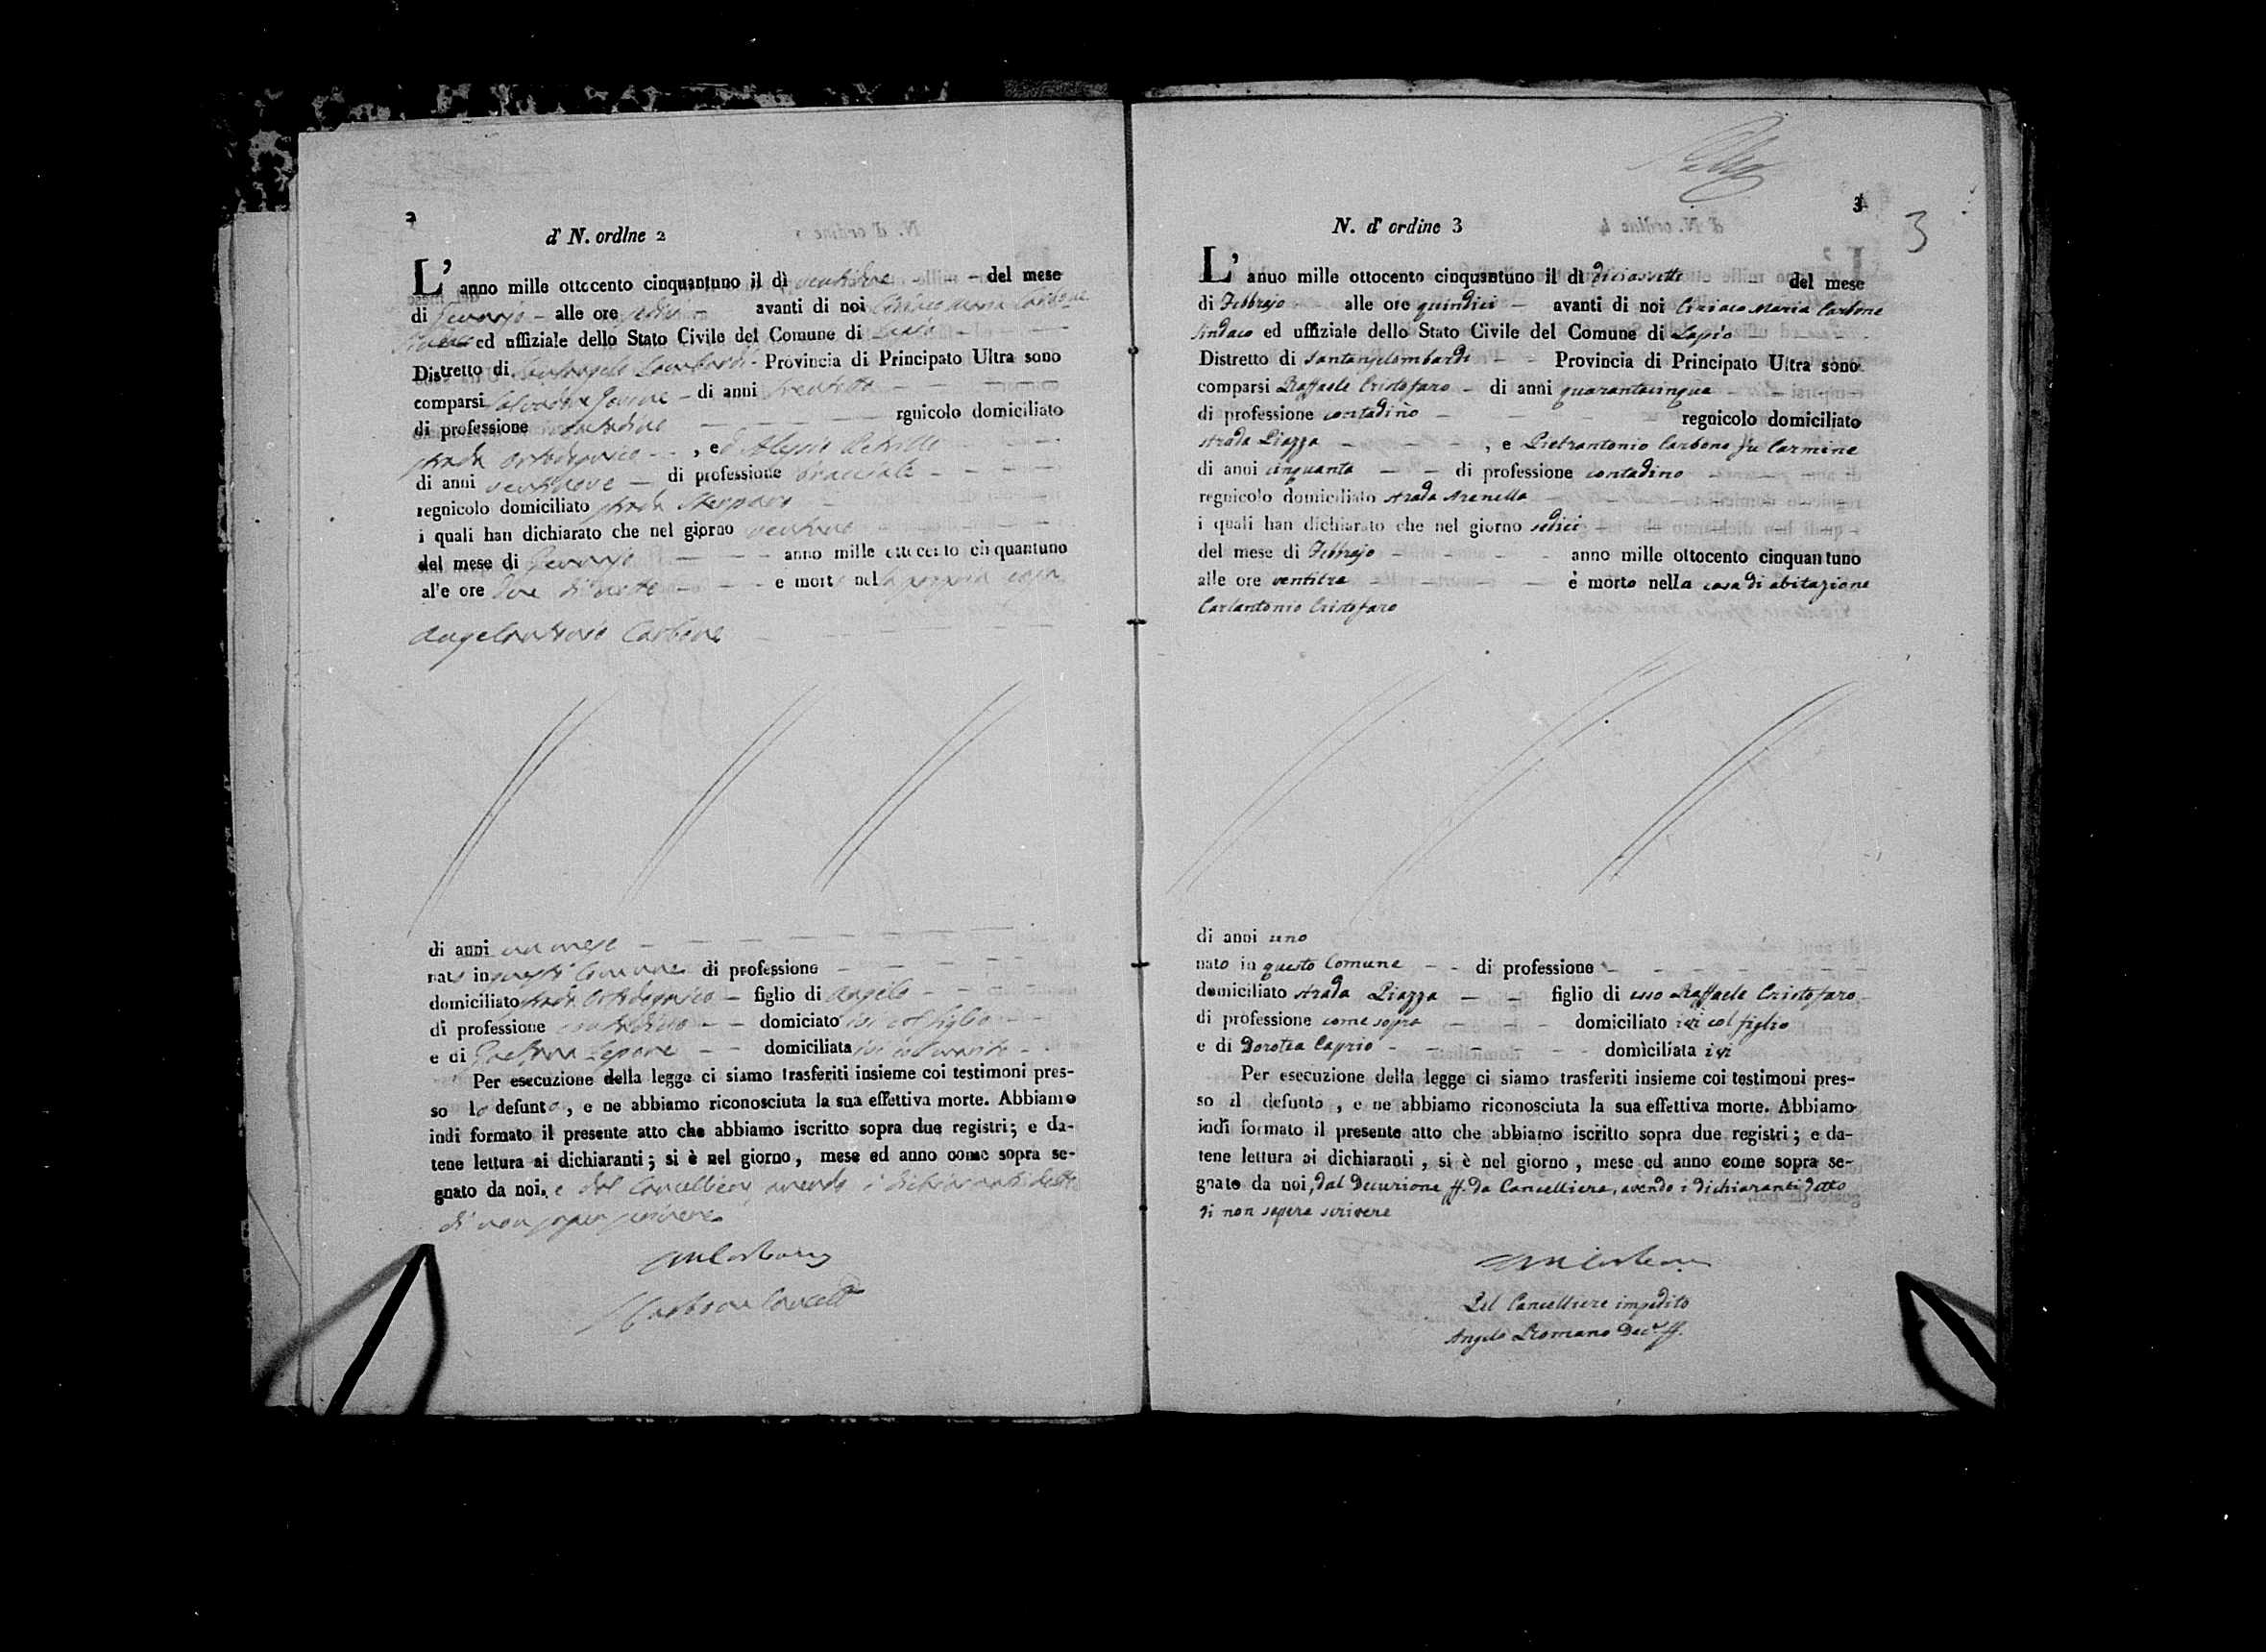 2
d' N. ordine 2
L' anno mille ottocento cinquantuno il dì ventidue del mese
di Gennajo alle ore sedici avanti di noi Ciriaco Maria Carbone
Sindaco ed uffiziale dello Stato Civile del Comune di Lapio
Distretto di Santangelo Lombardi Provincia di Principato Ultra sono
comparsi Salvatore Jovine di anni trentotto
di professione contadino rgnicolo domiciliato
strada , ed Alessio
di anni ventinove di professione bracciale
regnicolo domiciliato strada
i quali han dichiarato che nel giorno ventuno
del mese di Gennajo anno mille ottocento cinquantuno
alle ore due di notte è morto nella propria casa
Angelantonio Carbone
di anni un mese
nato in questo Comune di professione
domiciliato strada figlio di Angelo
di professione contadino domiciato ivi col figlio
e di Gaetana Lepore domiciliata ivi col marito
Per esecuzione della legge ci siamo trasferiti insieme coi testimoni pres-
so lo defunto , e ne abbiamo riconosciuta la sua effettiva morte. Abbiamo
indi formato il presente atto che abbiamo iscritto sopra due registri ; e da-
tene lettura ai dichiaranti ; si è nel giorno , mese ed anno come sopra se-
gnato da noi, e dal Cancelliere avendo i dichiaranti detto
di non saper scrivere
CMCarbone
Carbone Cancell
3
3
N. d' ordine 3
L' anno mille ottocento cinquantuno il dì diciassette del mese
di Febbrajo alle ore quindici avanti di noi Ciriaco Maria Carbone
Sindaco ed uffiziale dello Stato Civile del Comune di Lapio
Distretto di Santangelombardi Provincia di Principato Ultra sono
comparsi Raffaele Cristofaro di anni quarantacinque
di professione contadino regnicolo domiciliato
strada Piazza , e Pietrantonio Carbone fu Carmine
di anni cinquanta di professione contadino
regnicolo domiciliato strada Arenella
i quali han dichiarato che nel giorno sedici
del mese di Febbrajo anno mille ottocento cinquantuno
alle ore ventitre è morto nella casa di abitazione
Carlantonio Cristofaro
di anni uno
nato in questo Comune di professione
domiciliato strada Piazza figlio di esso Raffaele Cristofaro
di professione come sopra domiciliato ivi col figlio
e di Dorotea Caprio domiciliata ivi
Per esecuzione della legge ci siamo trasferiti insieme coi testimoni pres-
so il defunto , e ne abbiamo riconosciuta la sua effettiva morte. Abbiamo
indi formato il presente atto che abbiamo iscritto sopra due registri ; e da-
tene lettura ai dichiaranti , si è nel giorno , mese ed anno come sopra se-
gnato da noi, dal Decurione ff. da Cancelliere, avendo i dichiaranti detto
di non sapere scrivere
CMCarbone
Pel Cancelliere impedito
Angelo Romano Dec.e ff.